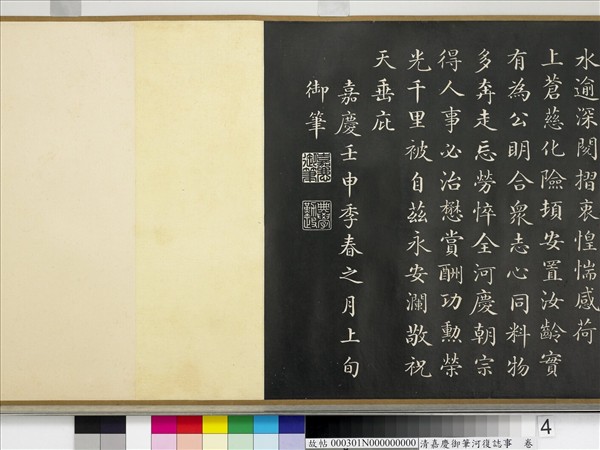 水逾深閱摺衷惶惴感荷
上蒼慈化險頃安置汝齡實
有為公明合衆志心同料物
多奔走忘勞悴全河慶朝宗
得人事必治懋賞酬功勲榮
光千里被自茲永安瀾敬祝
天垂庇
嘉慶壬申季春之月上旬
御筆
嘉慶御筆
典學勤政
4
故帖 000301N000000000 清嘉慶御筆河復誌事 卷